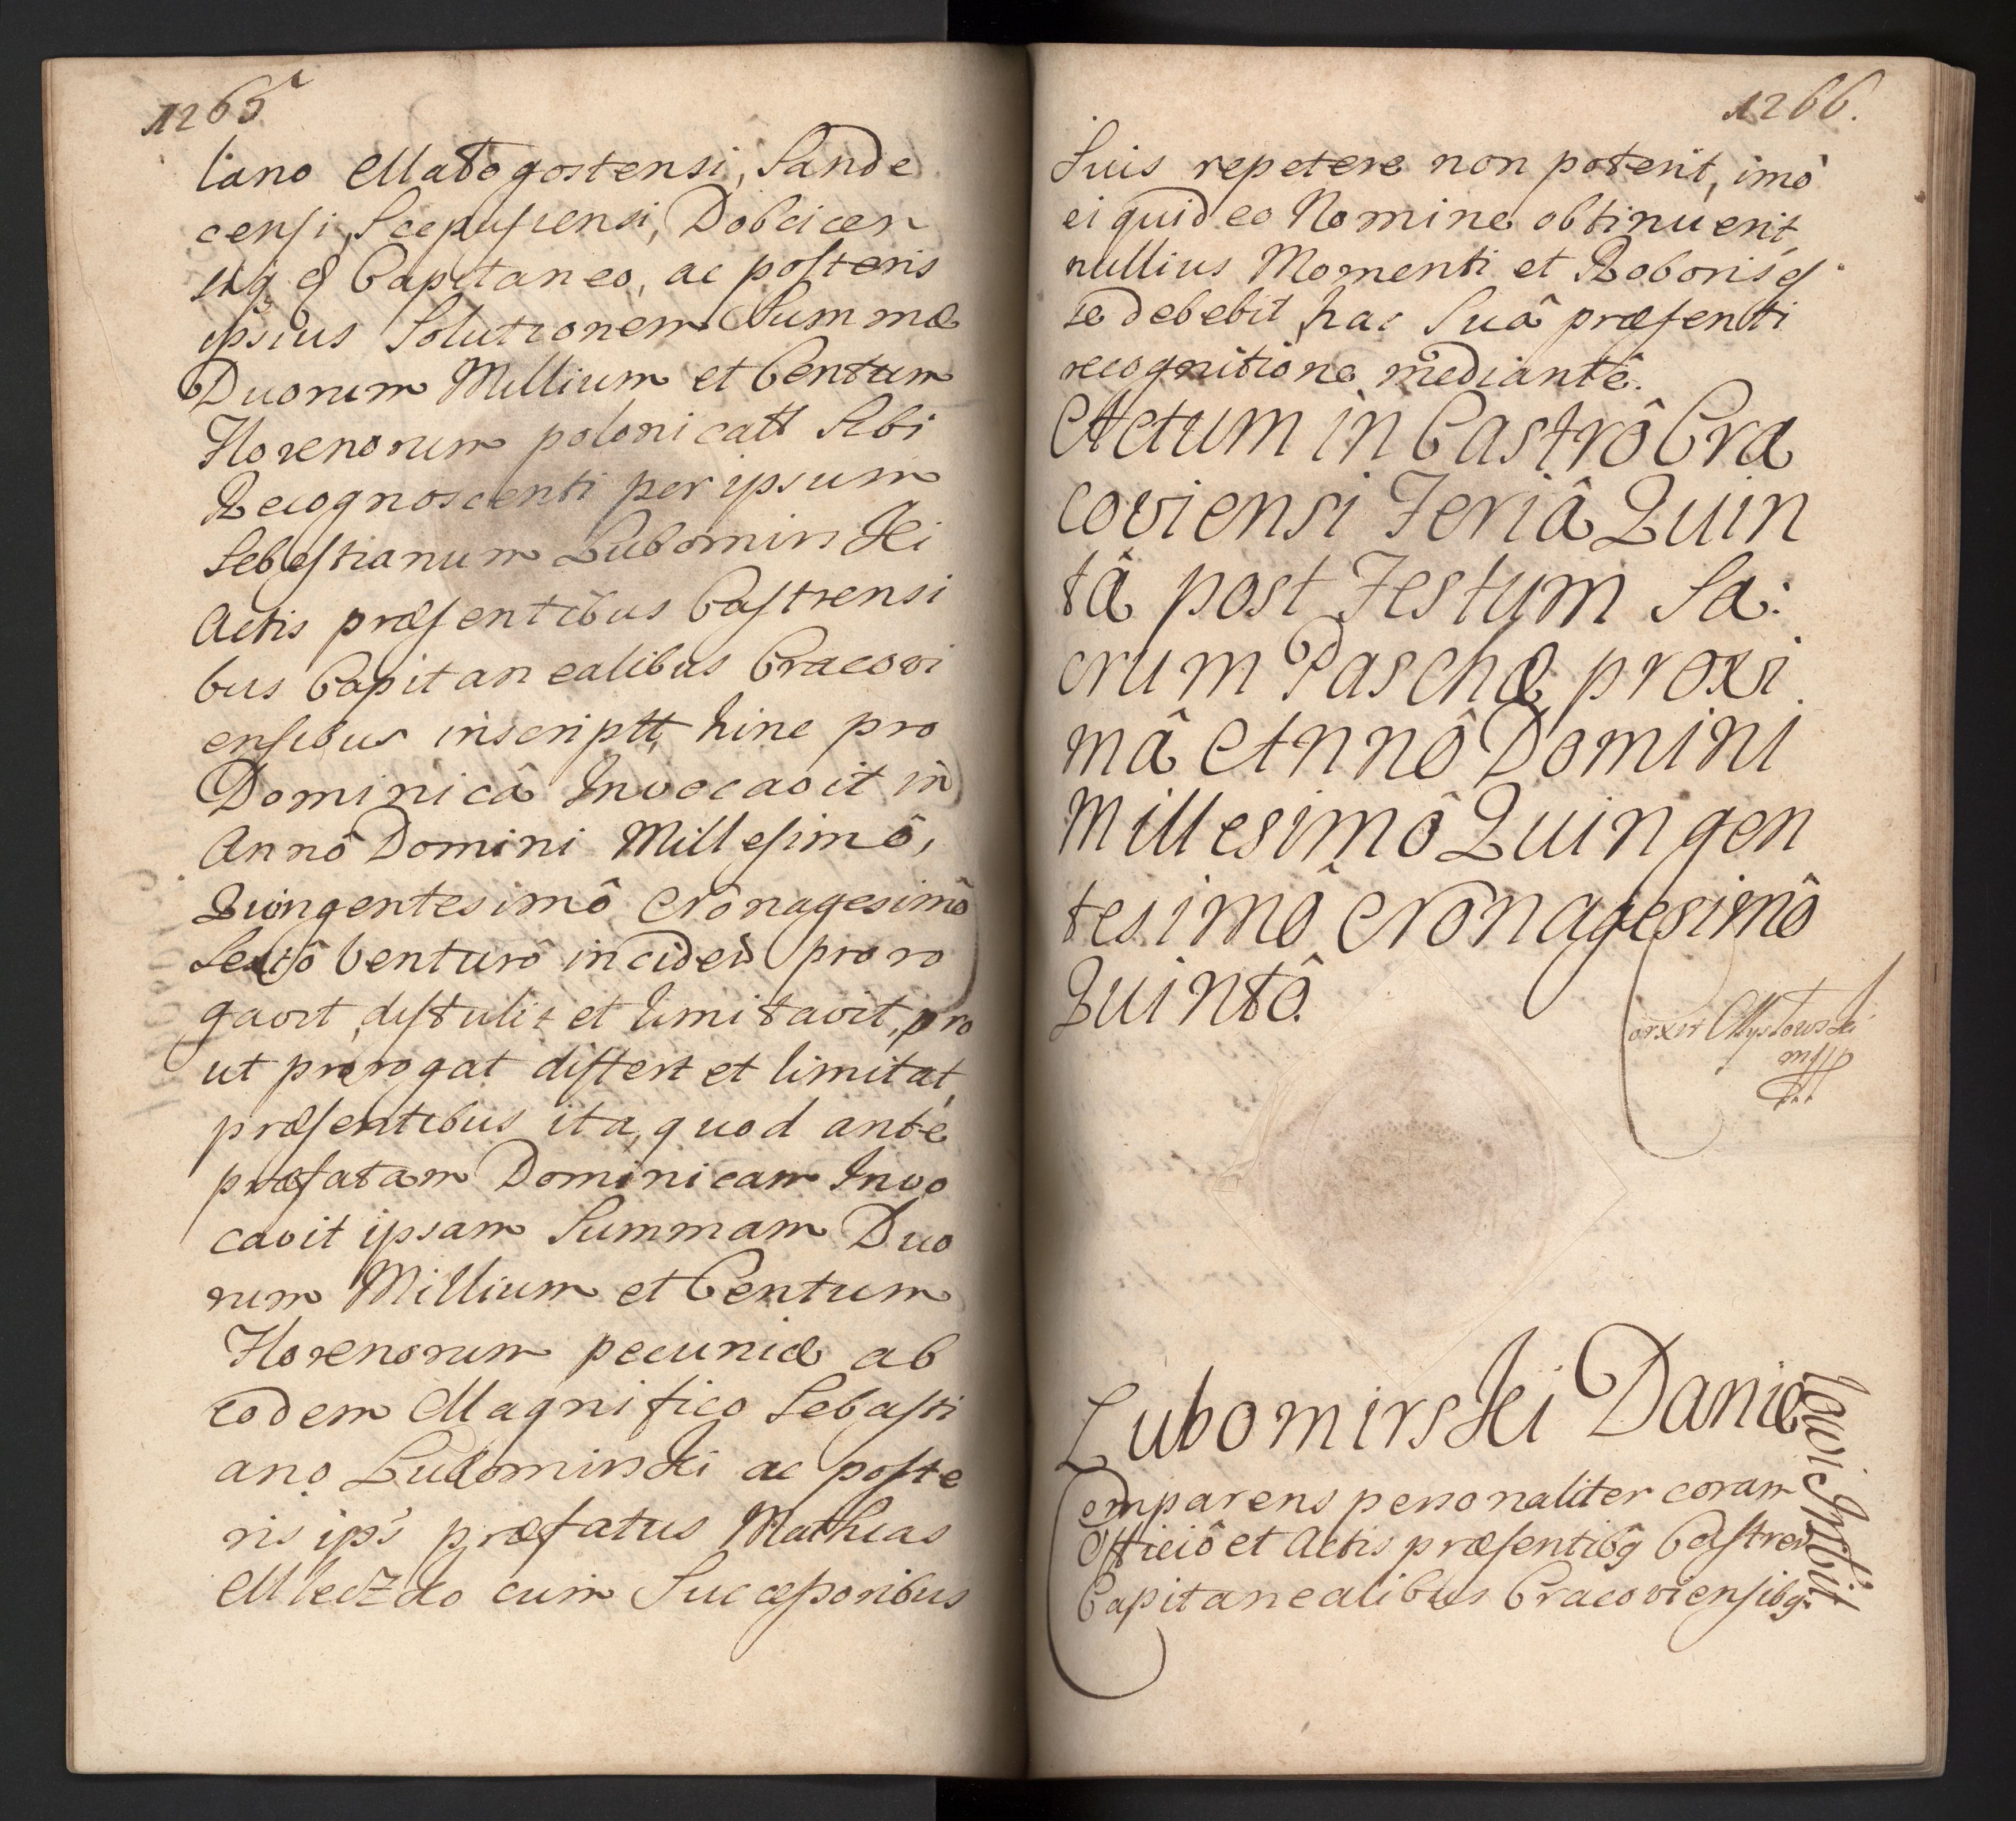 1265
liano Małogostensi, Sande
censi, Scepusiensi, Dobcicen
siq; & Capitaneo, ac posteris
ipsius Solutionem Summæ
Duorum Millium et Centum
Florenorum polonicatt Sibi
Recognoscenti per ipsum
Sebestianum Lubomirski
Actis præsentibus Castrensi
bus Capitanealibus Cracovi
ensibus inscriptt, hinc pro
Dominicâ Invocavit in
Annô Domini Millesimô,
Quingentesimô Nonagesimô
Sextô Venturô inciden prŏro
gavit, distulit et limitavit, pro
ut prorogat differt et limitat,
præsentibus ita, quod ante
præfatam Dominicam Invo
cavit ipsam Summam Duo
rum Millium et Centum
Florenorum pecuniæ ab
eodem Magnifico Sebasti
ano Lubomirski ac poste
ris ips's præfatus Mathias
Mleczko cum Successoribus
1266.
Suis repetere non poterit, imò
ei quid eo Nomine obtinuerit,
nullius Momenti et Roboris es
se debebit, hac Suâ præsenti
recognitione mediante.
Actum in Castrô Cra
coviensi Feriâ Quin
tâ post Festum Sa:
crum Paschæ proxi
mâ Annô Domini
Millesimô Quingen
tesimô Nonagesimô
Quintô.
Lubomirski Danie
lowic Inhibit
Comparens personaliter coram
Officiô et Actis præsentibq Castren
Capitanealibus Cracoviensibq